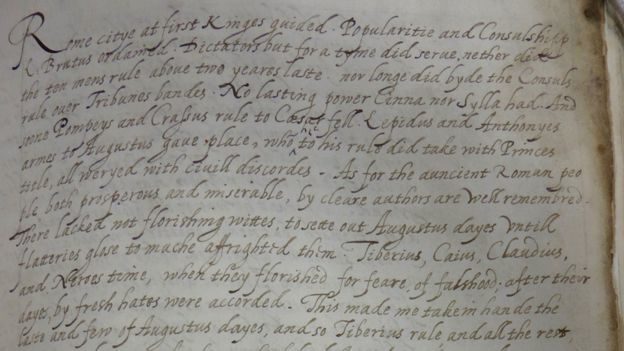 Rome citye at first Kinges guided. Popularitie and Consulshipp
L. Brutus ordained. Dictators but for a tyme did serve, nether did
the ten mens rule above two yeares laste. nor longe did byde the Consuls
rule over Tribunes bandes. No lasting power Cinna nor Sylla had. And
soone Pompeys and Crassus rule to Cæsar fell. Lepidus and Anthonyes
armes to Augustus gave place, who to his rule did take with Princes
title, all weryed with civill discordes. As for the auncient Roman peo
ple both prosperous and miserable, by cleare authors are well remembred.
There lacked not florishing wittes, to sette out Augustus dayes untill
flatteries glose to muche affrighted them. Tiberius, Caius, Claudius,
and Neroes tyme, when they florished for feare, of falshood; after their
dayes, by fresh hates were accorded. This made me take in hande the
laste and few of Augustus dayes, and so Tiberius rule and all the rest,